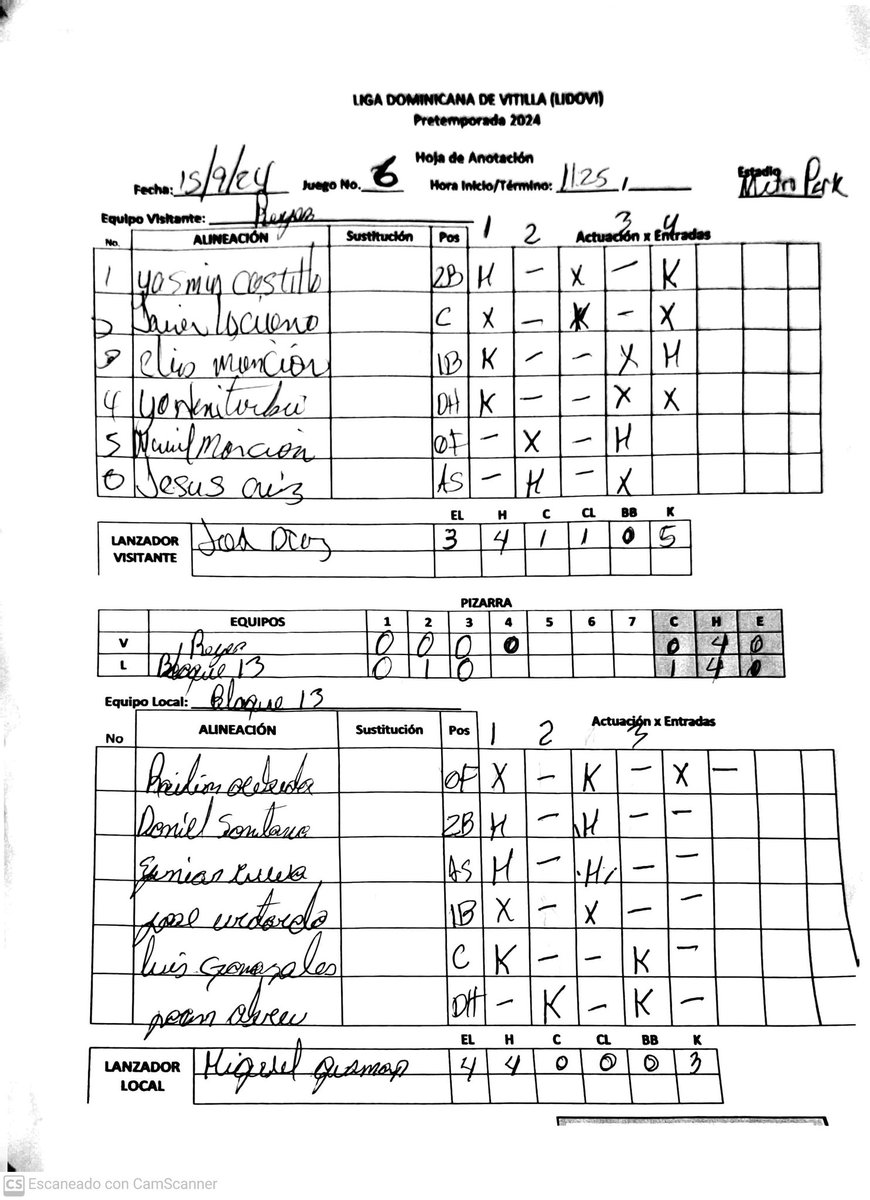 LIGA DOMINICANA DE VITILLA (LIDOVI)
Pretemporada 2024
Hoja de Anotación
Fecha: 15/9/24 Juego No. 6 Hora Inicio/Término: 11:25 , Estadio Metro Park
Equipo Visitante: Reyes
No. ALINEACIÓN Sustitución Pos 1 2 Actuación x Entradas 3 4
1 Yasmin Castillo 2B H — X — K
2 Javier C X — K — X
3 Elis Moncion 1B K — — X H
4 DH K — — X X
5 Moncion OF — X — H
6 Jesus AS — H — X
EL H C CL BB K
LANZADOR VISITANTE 3 4 1 1 0 5
PIZARRA
EQUIPOS 1 2 3 4 5 6 7 C H E
V Reyes 0 0 0 0 0 4 0
L Bloque 13 0 1 0 1 4 0
Equipo Local: Bloque 13
No ALINEACIÓN Sustitución Pos 1 2 Actuación x Entradas 3
OF X — K — X —
Daniel Santana 2B H — H — —
AS H — H — —
Jose 1B X — X — —
Luis Gonazales C K — — K —
DH — K — K —
EL H C CL BB K
LANZADOR LOCAL Miguel 4 4 0 0 0 3
CS Escaneado con CamScanner